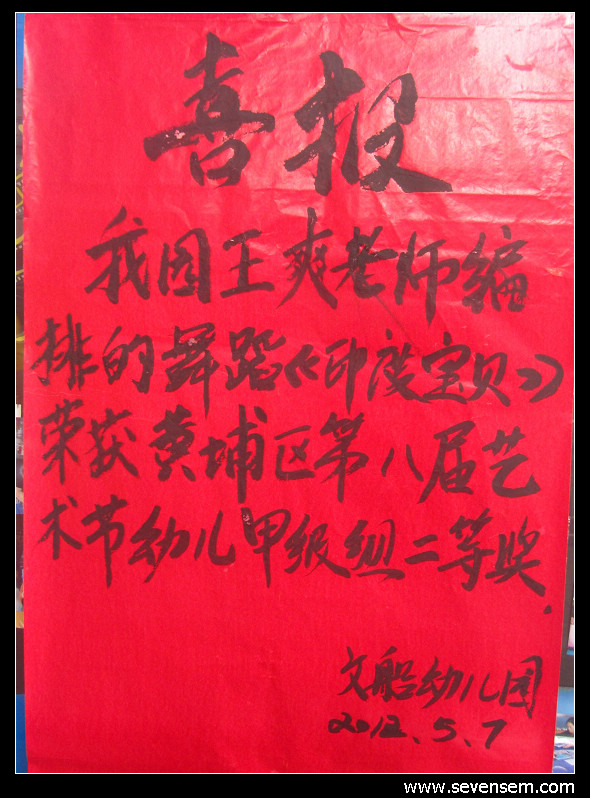 喜报
我园王爽老师编
排的舞蹈《印度宝贝》
荣获黄埔区第八届艺
术节幼儿甲级组二等奖.
文船幼儿园
2012.5.7
www.sevensem.com